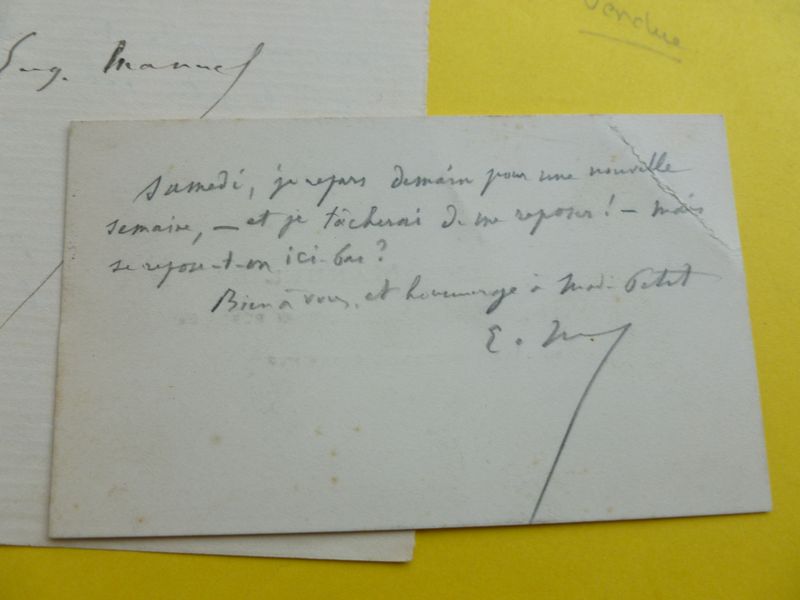 Vendue
Eug. Manuel
Samedi, je repars demain pour une nouvelle
semaine, — et je tâcherai de me reposer ! — mais
se repose-t-on ici-bas ?
Bien à vous, et hommage à Mad. Petit
E. M.